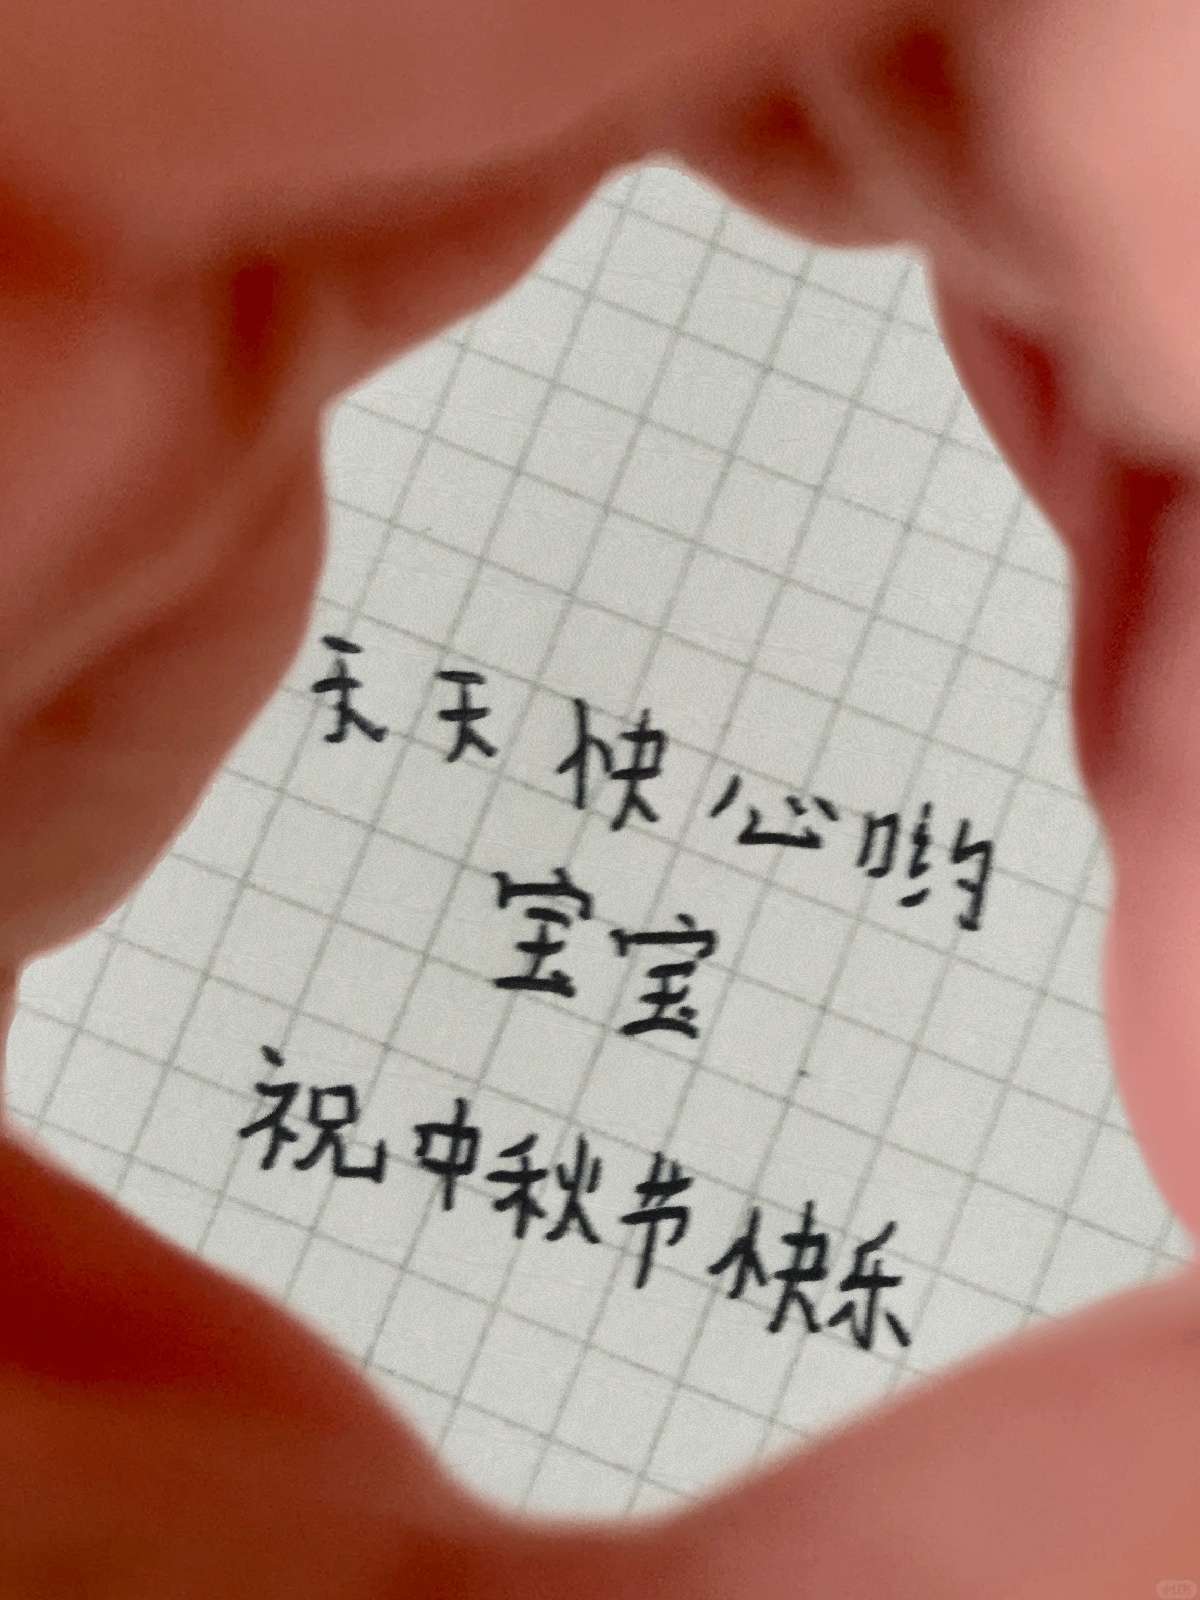 天天快心哟
宝宝
祝中秋节快乐